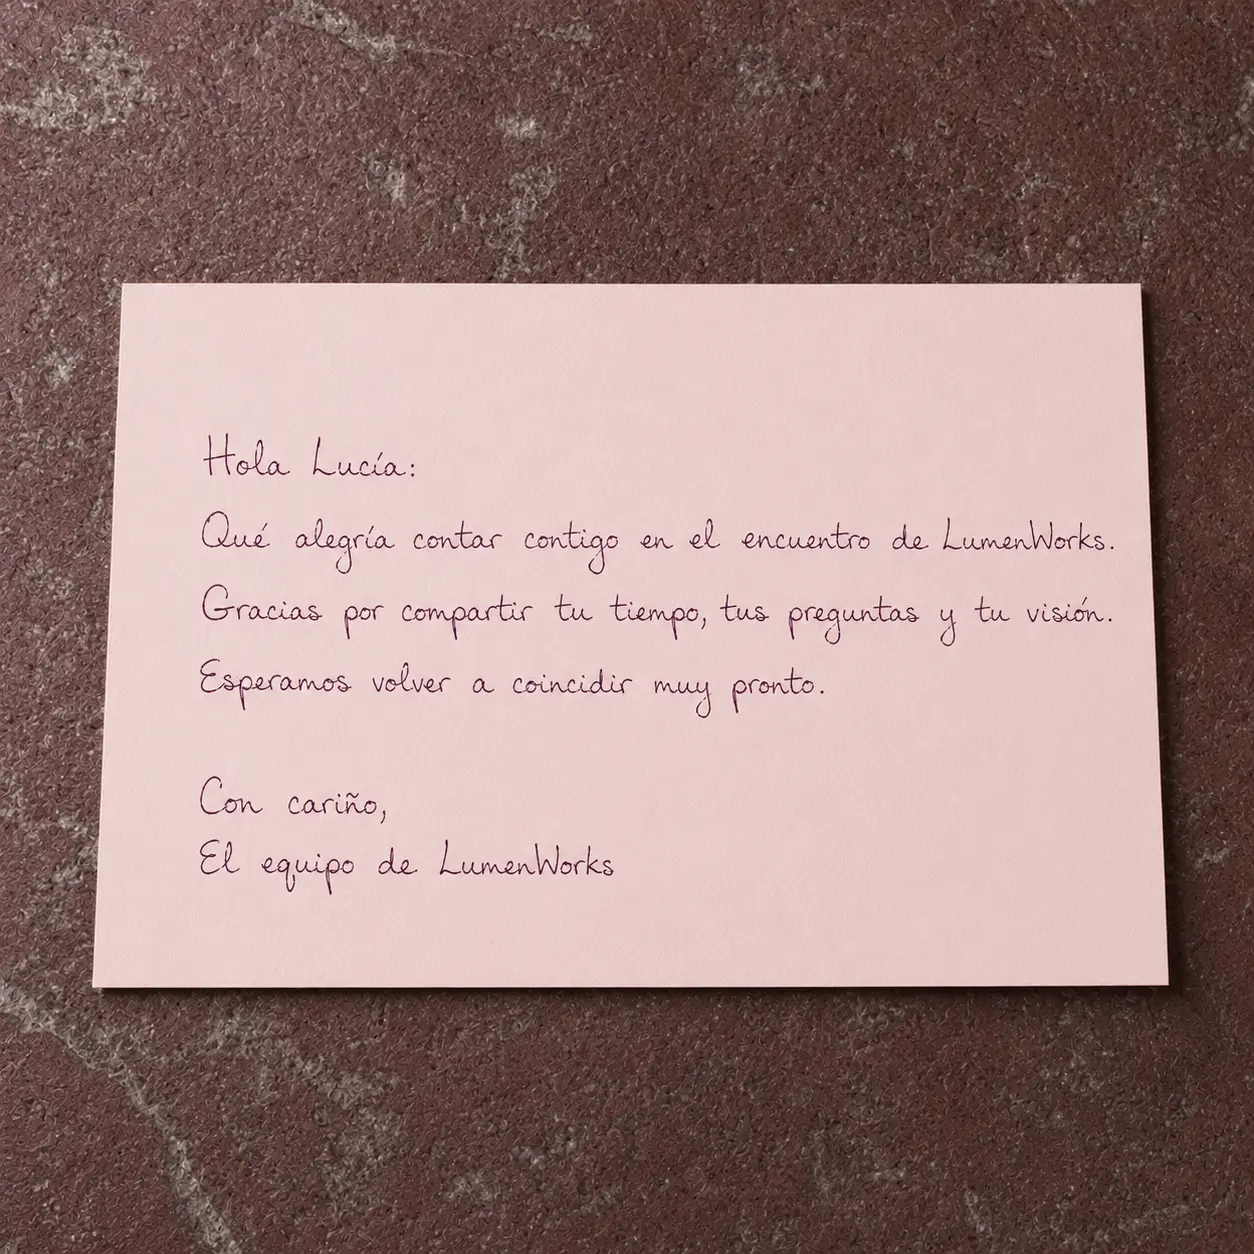 Hola Lucía:
Qué alegría contar contigo en el encuentro de LumenWorks.
Gracias por compartir tu tiempo, tus preguntas y tu visión.
Esperamos volver a coincidir muy pronto.
Con cariño,
El equipo de LumenWorks